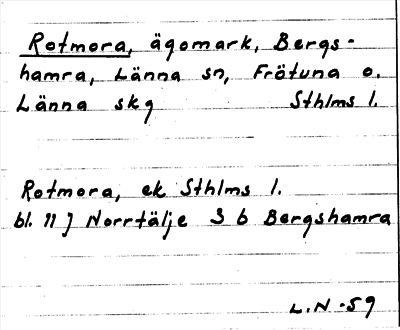 Rotmora, ägomark, Bergs-
hamra, Länna sn, Frötuna o.
Länna skg Sthlms l.
Rotmora, ek Sthlms l.
bl. 11 J Norrtälje 3 b Bergshamra
L.N -59